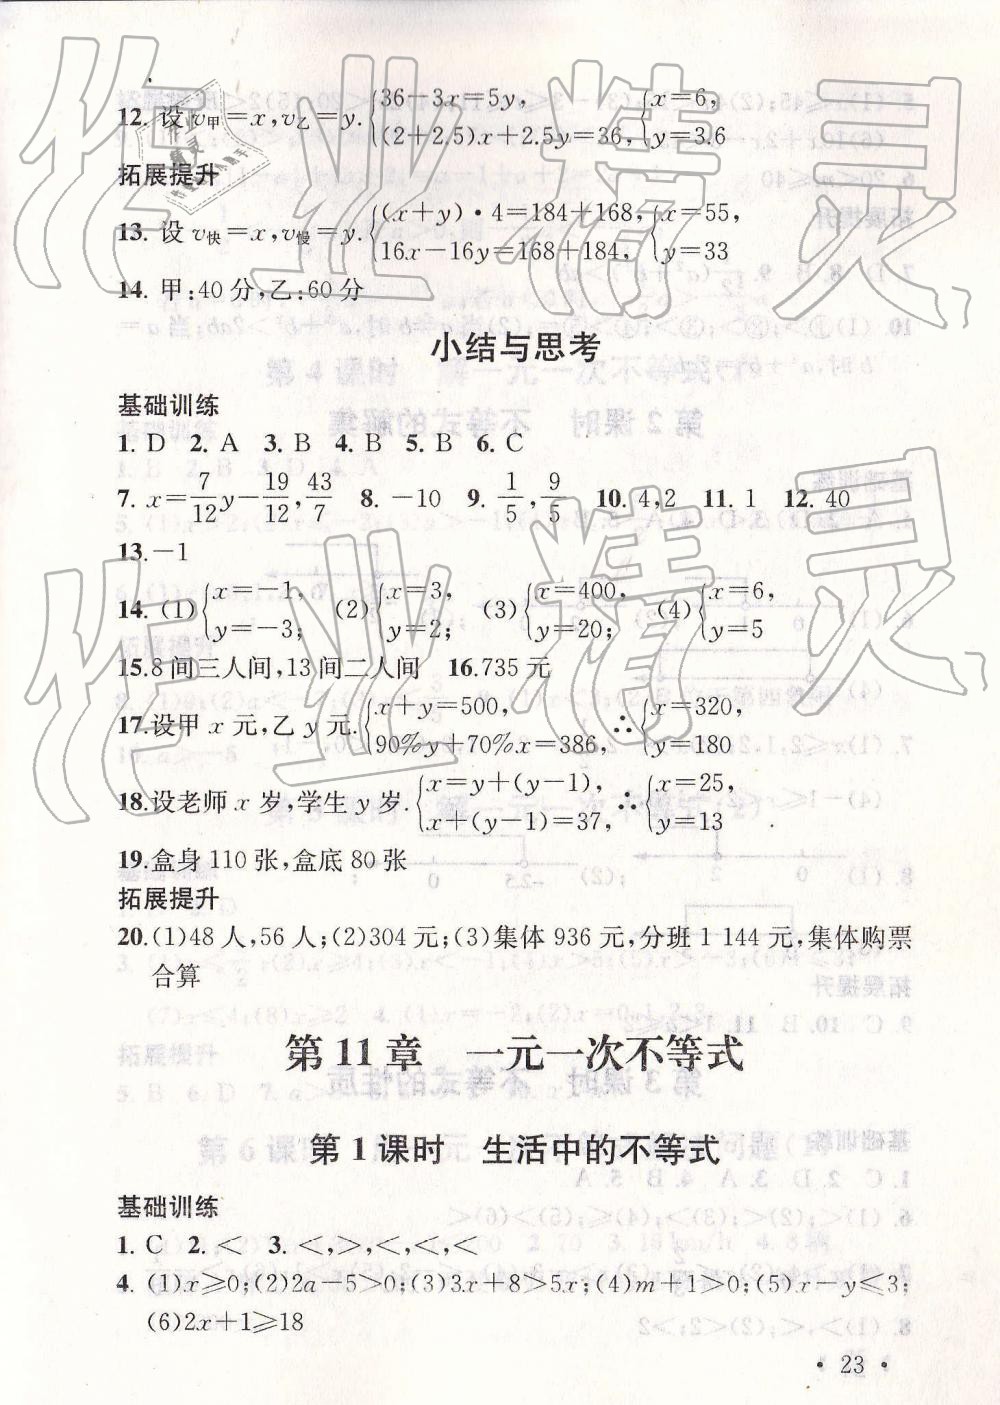 12. 设 v甲=x,v乙=y. {36-3x=5y, (2+2.5)x+2.5y=36, {x=6, y=3.6
拓展提升
13. 设 v快=x,v慢=y. {(x+y)·4=184+168, 16x-16y=168+184, {x=55, y=33
14. 甲:40 分,乙:60 分
小结与思考
基础训练
1. D 2. A 3. B 4. B 5. B 6. C
7. x=7/12y-19/12,43/7 8. -10 9. 1/5,9/5 10. 4,2 11. 1 12. 40
13. -1
14. (1){x=-1, y=-3; (2){x=3, y=2; (3){x=400, y=20; (4){x=6, y=5
15.8 间三人间,13 间二人间 16.735 元
17.设甲 x 元,乙 y 元. {x+y=500, 90%y+70%x=386, ∴{x=320, y=180
18.设老师 x 岁,学生 y 岁. {x=y+(y-1), x+(y-1)=37, ∴{x=25, y=13.
19.盒身 110 张,盒底 80 张
拓展提升
20.(1)48 人,56 人;(2)304 元;(3)集体 936 元,分班 1 144 元,集体购票
合算
第 11 章 一元一次不等式
第 1 课时 生活中的不等式
基础训练
1. C 2. < 3. <,>,<,<,<
4. (1)x≥0;(2)2a-5>0;(3)3x+8>5x;(4)m+1>0;(5)x-y≤3;
(6)2x+1≥18
· 23 ·
作业精灵
作业精灵